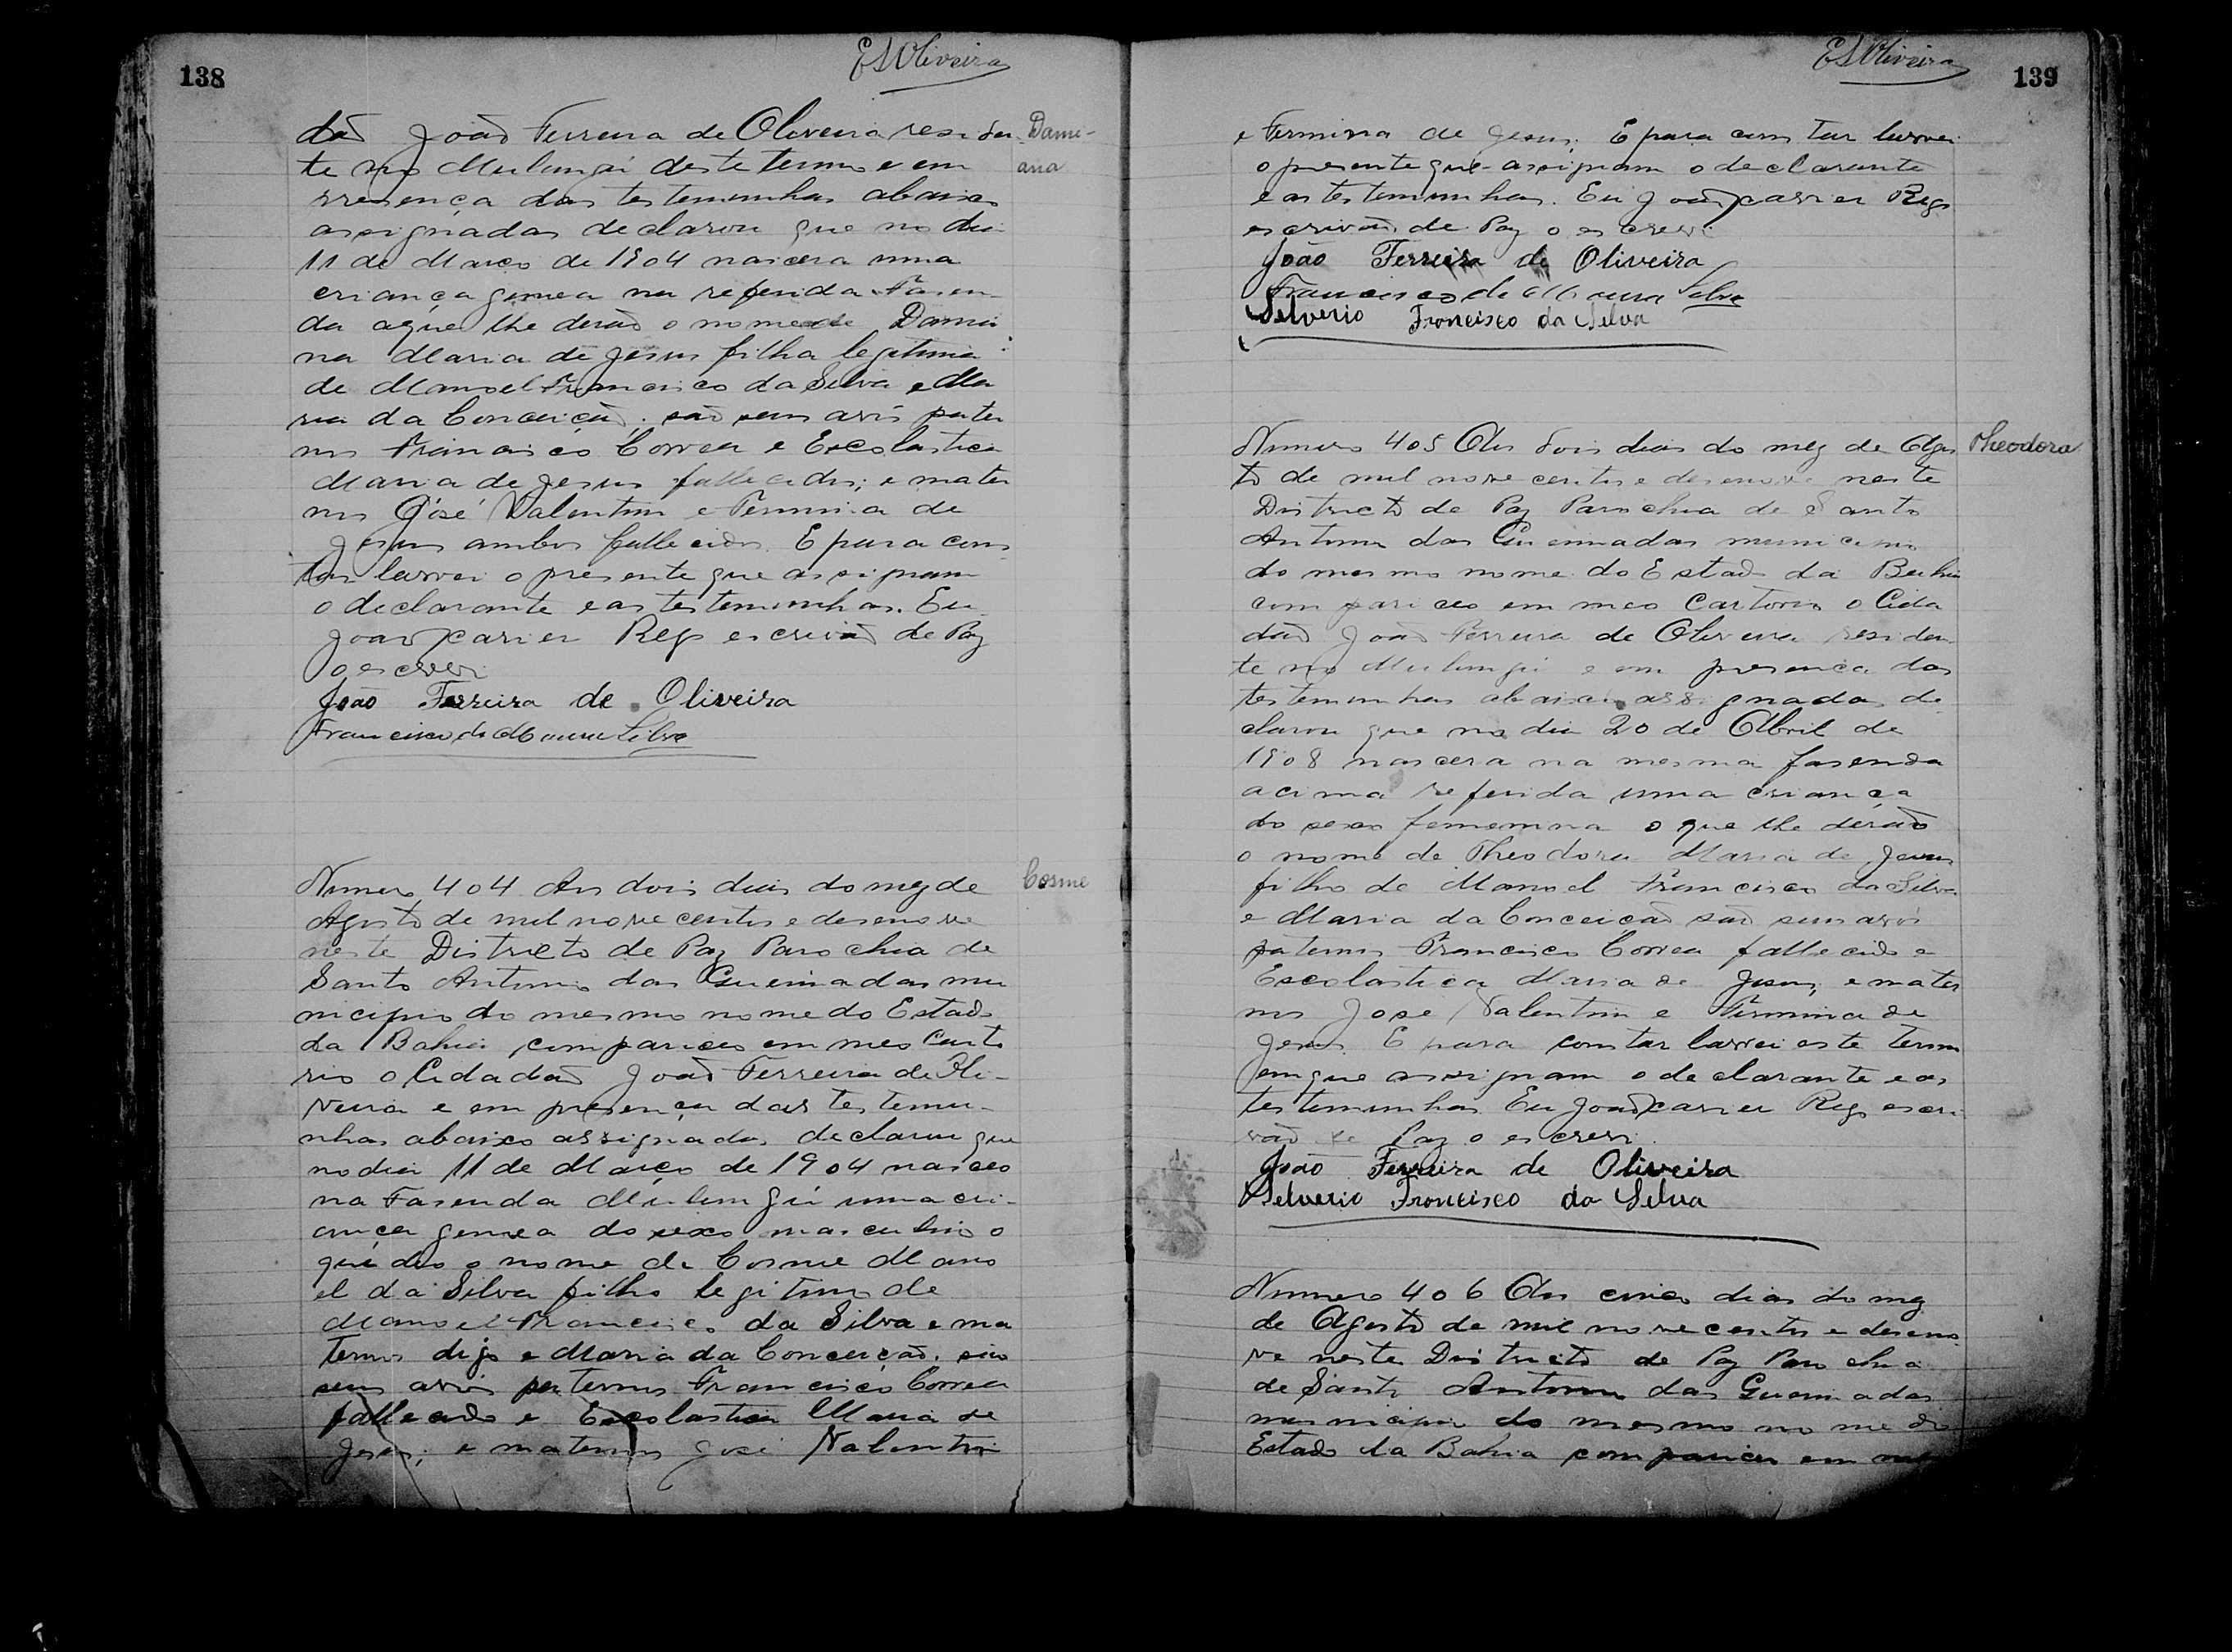 138
ESOliveira
dão João Ferreira de Oliveira residen
Dami-
ana
te no Mulungú deste termo e em
presença das testemunhas abaixo
assignadas declarou que no dia
11 de Março de 1904 nascera uma
criança gemea na referida Fasen
da aque lhe derão o nome de Damia
na Maria de Jesus filha legitima
de Manoel Francisco da Silva e Ma
ria da Conceição; são seus avós pater
nos Francisco Correa e Escolastica
Maria de Jesus fallecidos; e mater
nos José Valentim e Firmina de
Jesus ambos fallecidos. E para cons
tar lavrei o presente que assignam
o declarante e as testemunhas. Eu
João Xavier Rego escrivão de Paz
o escrevi
João Ferreira de Oliveira
Francisco de Moura Silva
Numero 404 Aos dois dias do mez de
Cosme
Agosto de mil nove centos e desenove
neste Districto de Paz Parochia de
Santo Antonio das Queimadas mu
nicipio do mesmo nome do Estado
da Bahia, compareceo em meo Carto
rio o Cidadão João Ferreira de Oli-
veira e em presença das testemu-
nhas abaixo assignadas declarou que
no dia 11 de Março de 1904 nasceo
na Fasenda Mulungú uma cri-
ança gemea do sexo masculino o
que deo o nome de Cosme Mano
el da Silva filho legitimo de
Manoel Francisco da Silva e ma
ternos digo e Maria da Conceição, são
seus avós paternos Francisco Correa
fallecido e Escolastica Maria de
Jesus; e maternos José Valentim
139
ESOliveira
e Firmina de Jesus; E para constar lavrei
o presente que assignam o declarante
e as testemunhas. Eu João Xavier Rego
escrivão de Paz o escrevi
João Ferreira de Oliveira
Francisco de Moura Silva
Silverio Francisco da Silva
Numero 405 Aos dois dias do mez de Agos
Theodora
to de mil nove centos e desenove neste
Districto de Paz Parochia de Santo
Antonio das Queimadas municipio
do mesmo nome do Estado da Bahia
compareceo em meo Cartorio o Cida
dão João Ferreira de Oliveira residen
te no Mulungú e em presença das
testemunhas abaixo assignadas de
clarou que no dia 20 de Abril de
1908 nascera na mesma fasenda
acima referida uma criança
do sexo femenina o que lhe derão
o nome de Theodora Maria de Jesus
filha de Manoel Francisco da Silva
e Maria da Conceição são seus avós
paternos Francisco Correa fallecido e
Escolastica Maria de Jesus; e mater
nos José Valentim e Firmina de
Jesus. E para constar lavrei este termo
em que assignam o declarante e as
testemunhas Eu João Xavier Rego escri
vão de Paz o escrevi.
João Ferreira de Oliveira
Silverio Francisco da Silva
Numero 406 Aos cinco dias do mez
de Agosto de mil nove centos e deseno
ve neste Districto de Paz Parochia
de Santo Antonio das Queimadas
municipio do mesmo nome do
Estado da Bahia compareceo em meo